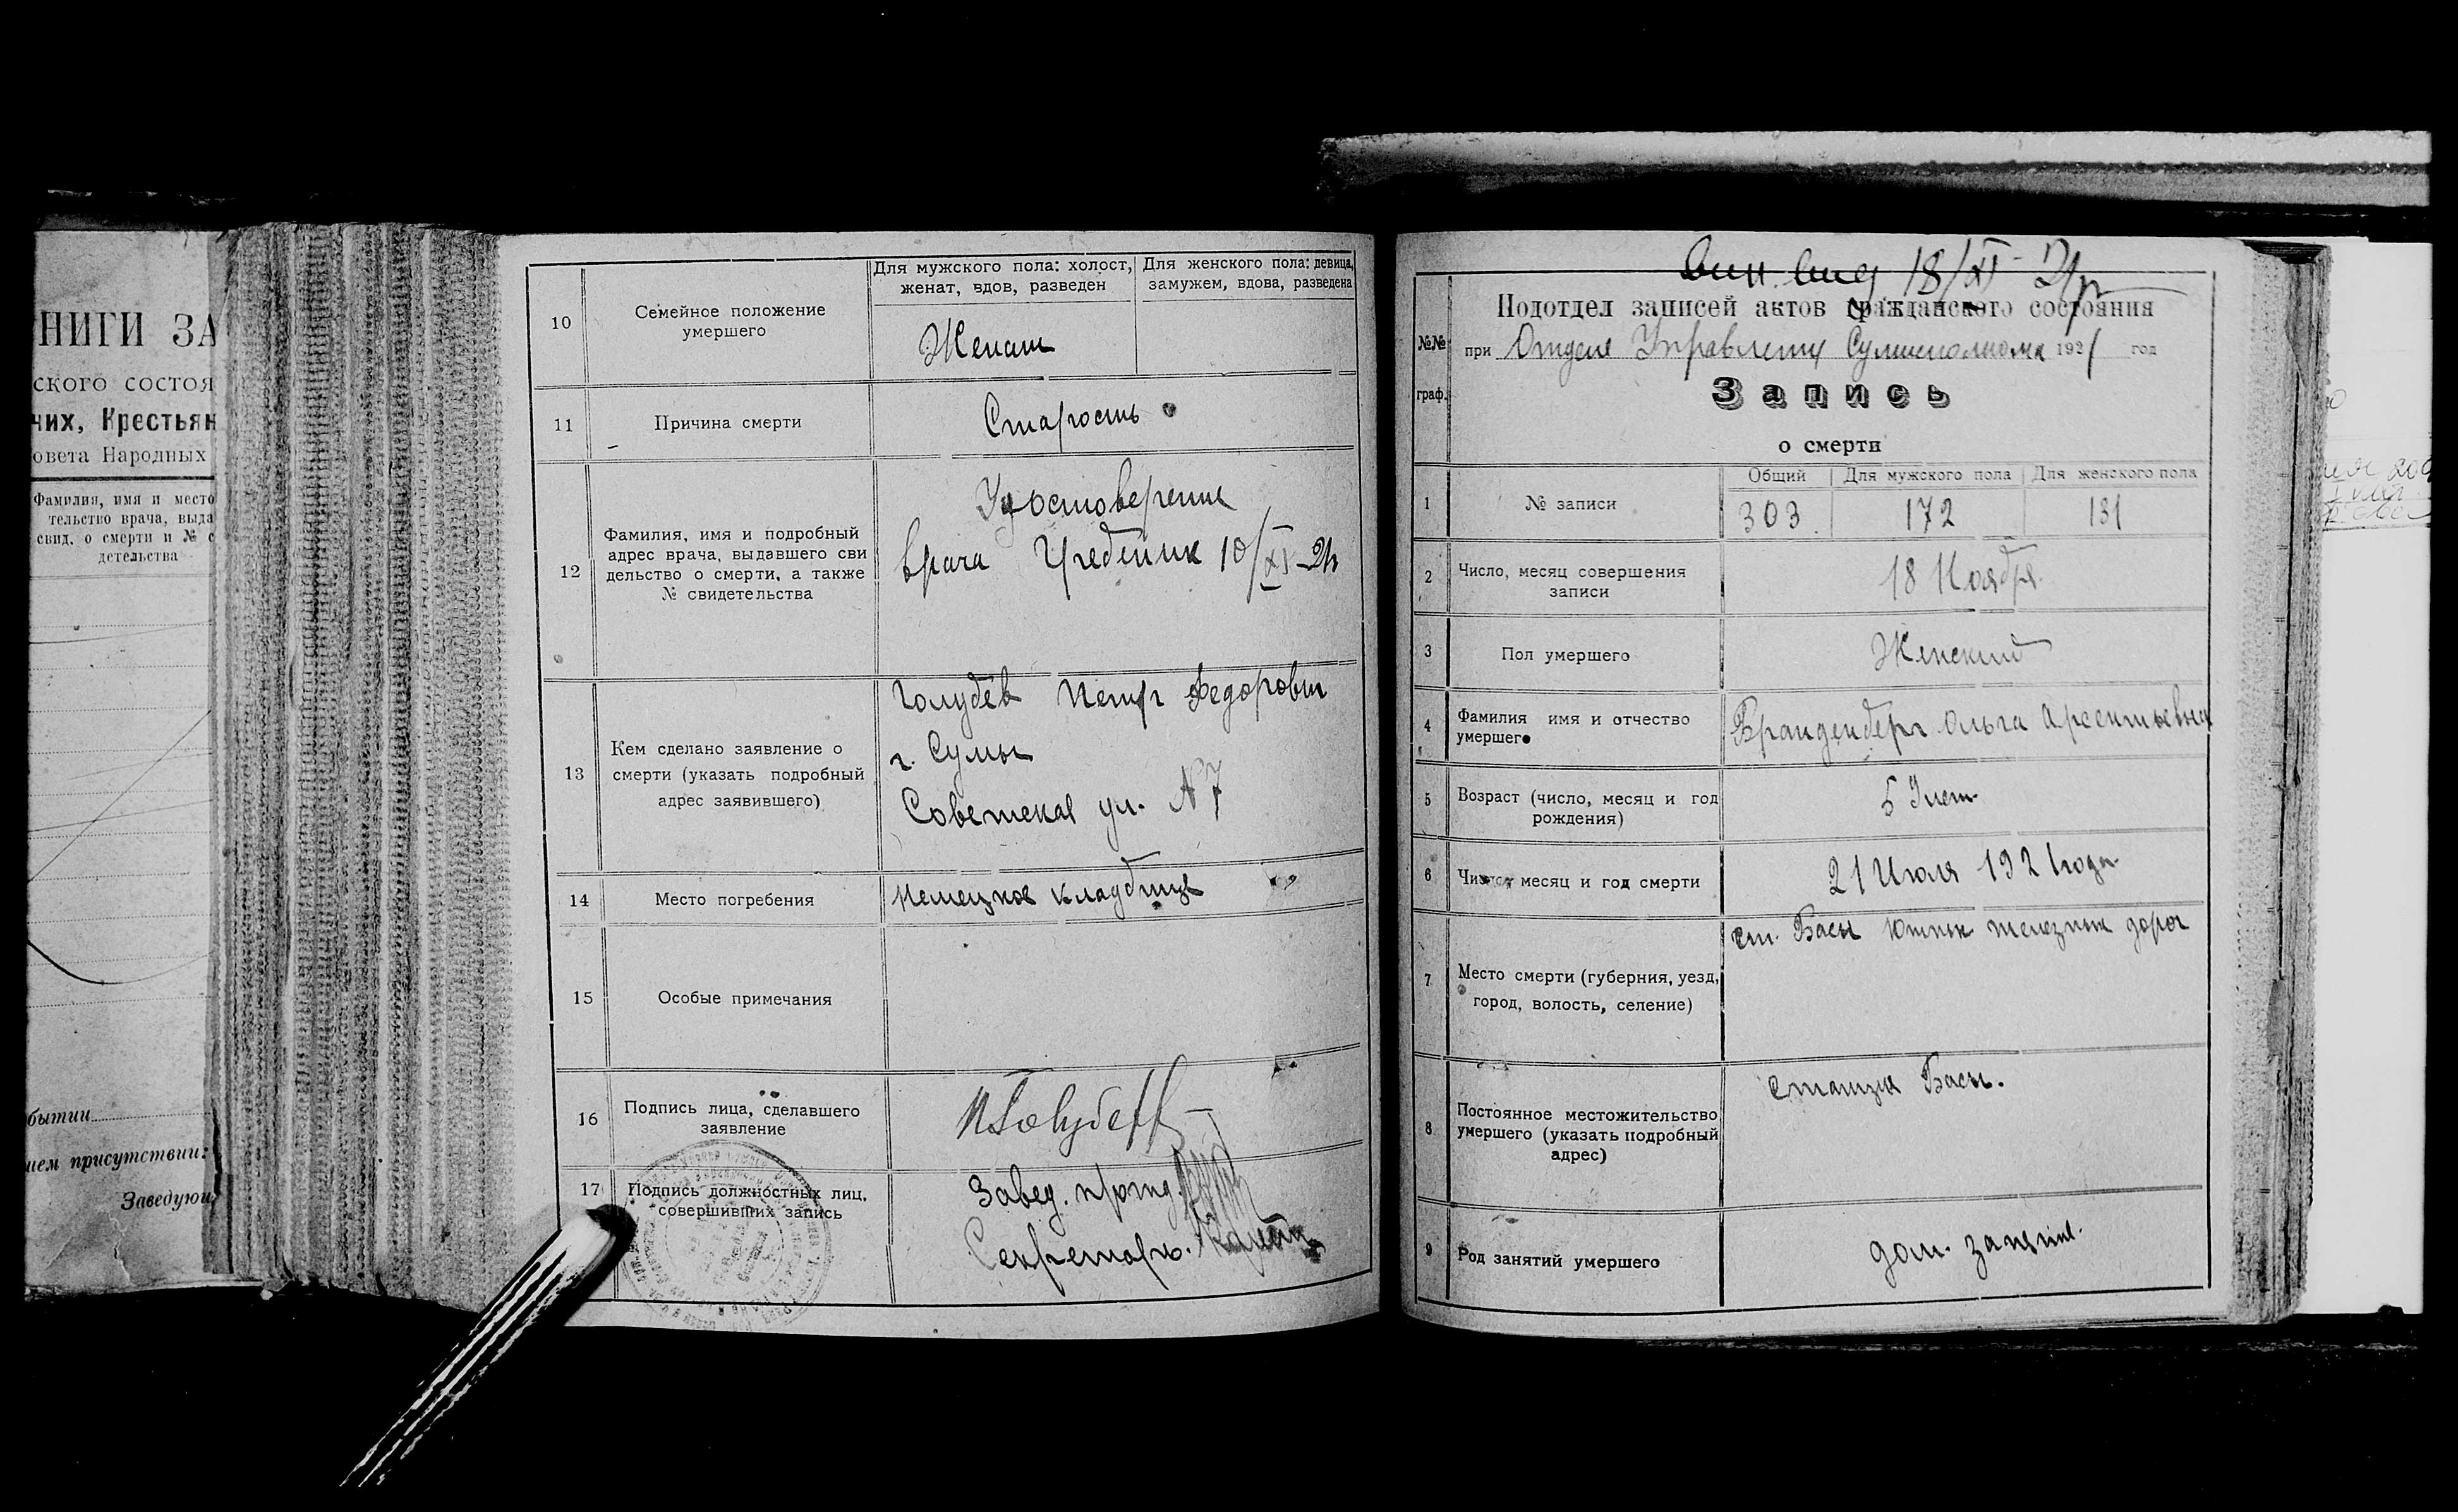 НИГИ ЗА
ского состоя
чих, Крестьян
овета Народных
Фамилия, имя и место
тельство врача, выда
свид. о смерти и № с
детельства
бытии
шем присутствии:
Заведующ
10
Семейное положение
умершего
Для мужского пола: холост,
женат, вдов, разведен
Для женского пола: девица,
замужем, вдова, разведена
Женат
11
Причина смерти
Старость
12
Фамилия, имя и подробный
адрес врача, выдавшего сви
дельство о смерти, а также
№ свидетельства
Удостоверение
врача Гребенник 18/XI-21г
13
Кем сделано заявление о
смерти (указать подробный
адрес заявившего)
Голубев Петр Федорович
г. Сумы
Советская ул. №7
14
Место погребения
Немецкое кладбище
15
Особые примечания
16
Подпись лица, сделавшего
заявление
ПГолубевъ
17
Подпись должностных лиц,
совершивших запись
Завед.
Секретарь.
18/XI-21г
Подотдел записей актов гражданского состояния
№№
граф.
при Отделе Управления Сумисполкома 1921 год
Запись
о смерти
1
№ записи
Общий
Для мужского пола
Для женского пола
303
172
131
2
Число, месяц совершения
записи
18 Ноября
3
Пол умершего
Женский
4
Фамилия имя и отчество
умершего
Бранденберг Ольга Арсентьевна
5
Возраст (число, месяц и год
рождения)
6
Число, месяц и год смерти
21 Июля 1921 года
7
Место смерти (губерния, уезд,
город, волость, селение)
ст. Басы Южных железных дорог
8
Постоянное местожительство
умершего (указать подробный
адрес)
станция Басы.
9
Род занятий умершего
дом. занятие.